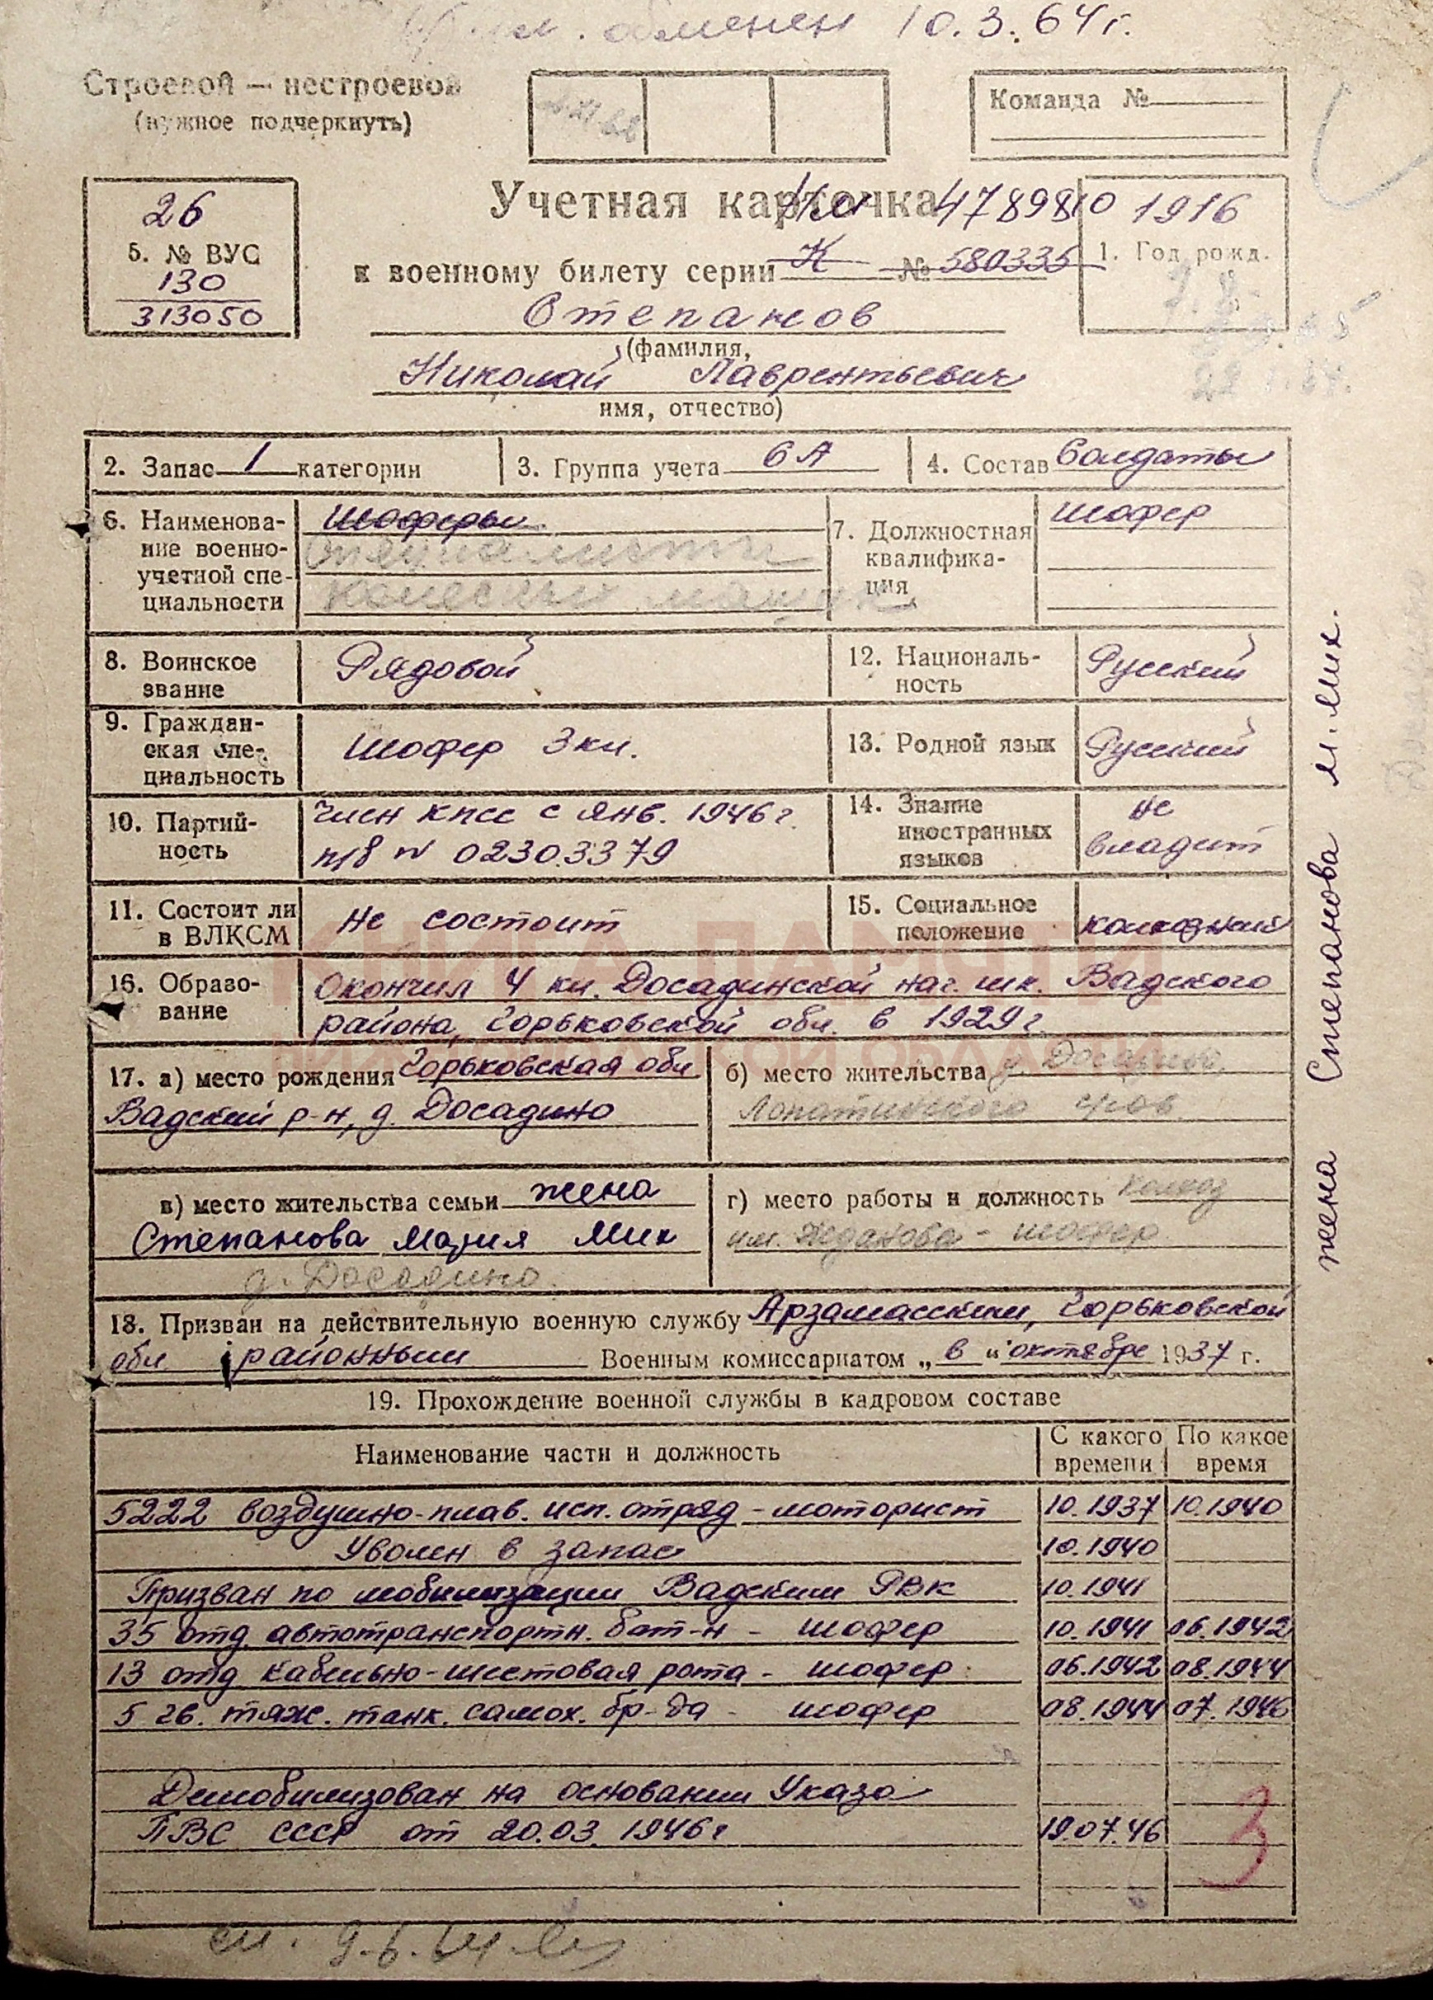 обменен 10.3.64г.
Строевой — нестроевой
(нужное подчеркнуть)
Команда №
26
5. № ВУС
130
313050
Учетная карточка
4789810
1916
1. Год рожд.
к военному билету серии К № 580335
Степанов
(фамилия,
Николай Лаврентьевич
имя, отчество)
2. Запас 1 категории
3. Группа учета 6А
4. Состав Солдаты
6. Наименова-
ние военно-
учетной спе-
циальности
Шоферы
Специалисты
колесных машин
7. Должностная
квалифика-
ция
шофер
8. Воинское
звание
Рядовой
12. Националь-
ность
Русский
9. Граждан-
ская спе-
циальность
Шофер 3 кл.
13. Родной язык
Русский
10. Партий-
ность
Член КПСС с янв. 1946 г.
п/б № 02303379
14. Знание
иностранных
языков
не
владеет
11. Состоит ли
в ВЛКСМ
не состоит
15. Социальное
положение
колхозник
КНИГА ПАМЯТИ
НИЖЕГОРОДСКОЙ ОБЛАСТИ
16. Образо-
вание
Окончил 4 кл. Досадинской нач. шк. Вадского
района, Горьковской обл. в 1929 г.
17. а) место рождения Горьковская обл
Вадский р-н, д. Досадино
б) место жительства д. Досадино,
Лопатинского
в) место жительства семьи жена
Степанова Мария Мих
д. Досадино.
г) место работы и должность колхоз
им. Жданова - шофер
жена Степанова М. Мих.
18. Призван на действительную военную службу Арзамасским, Горьковской
обл. районным Военным комиссариатом „ в " октябре 1937 г.
19. Прохождение военной службы в кадровом составе
Наименование части и должность
С какого
времени
По какое
время
5222 воздушно-плав. исп. отряд - моторист 10.1937 10.1940
Уволен в запас 10.1940
Призван по мобилизации Вадским РВК 10.1941
35 отд. автотранспортн. бат-н - шофер 10.1941 06.1942
13 отд кабельно-шестовая рота - шофер 06.1942 08.1944
5 гв. тяж. танк. самох. бр-да - шофер 08.1944 07.1946
Демобилизован на основании Указа
ПВС СССР от 20.03.1946 г 19.07.46
3
9.6.64